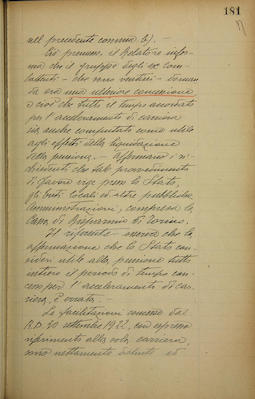 181
nel precedente comma b). –
Ciò premesso, il Relatore infor-
ma che il gruppo degli ex com-
battenti – che sono ventisei – doman-
da ora una ulteriore concessione
e cioè che tutto il tempo accordato
per l'acceleramento di carriera
sia anche computato come utile
agli effetti della liquidazione
della pensione. – Affermano i ri-
chiedenti che tale provvedimento
di favore vige presso lo Stato,
gli Enti locali ed altre pubbliche
Amministrazioni, compresa la
Cassa di Risparmio di Torino.
Il riferente osserva che la
affermazione che lo Stato con-
sideri utile alla pensione tutto
intiero il periodo di tempo con-
cesso per l'acceleramento di car-
riera, è errata. –
Le facilitazioni concesse dal
R.D. 30 settembre 1922, con espresso
riferimento alla sola carriera,
sono nettamente distinte ed